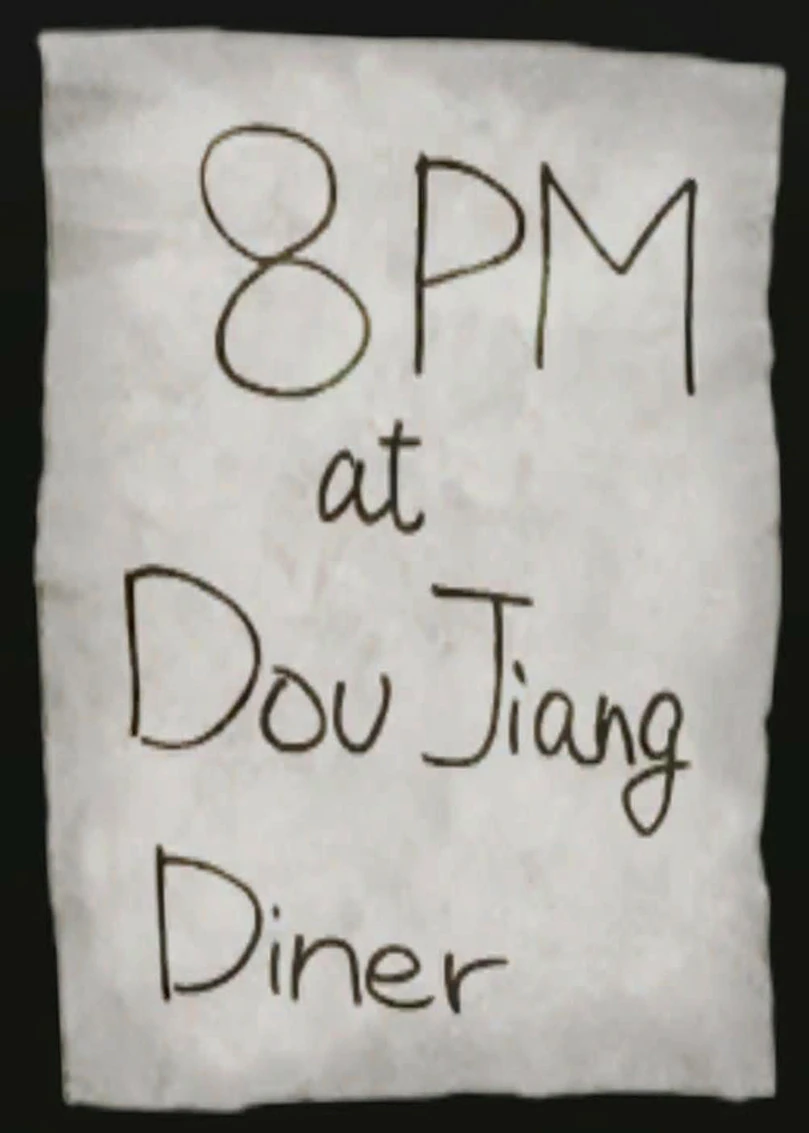 8 PM
at
Dou Jiang
Diner